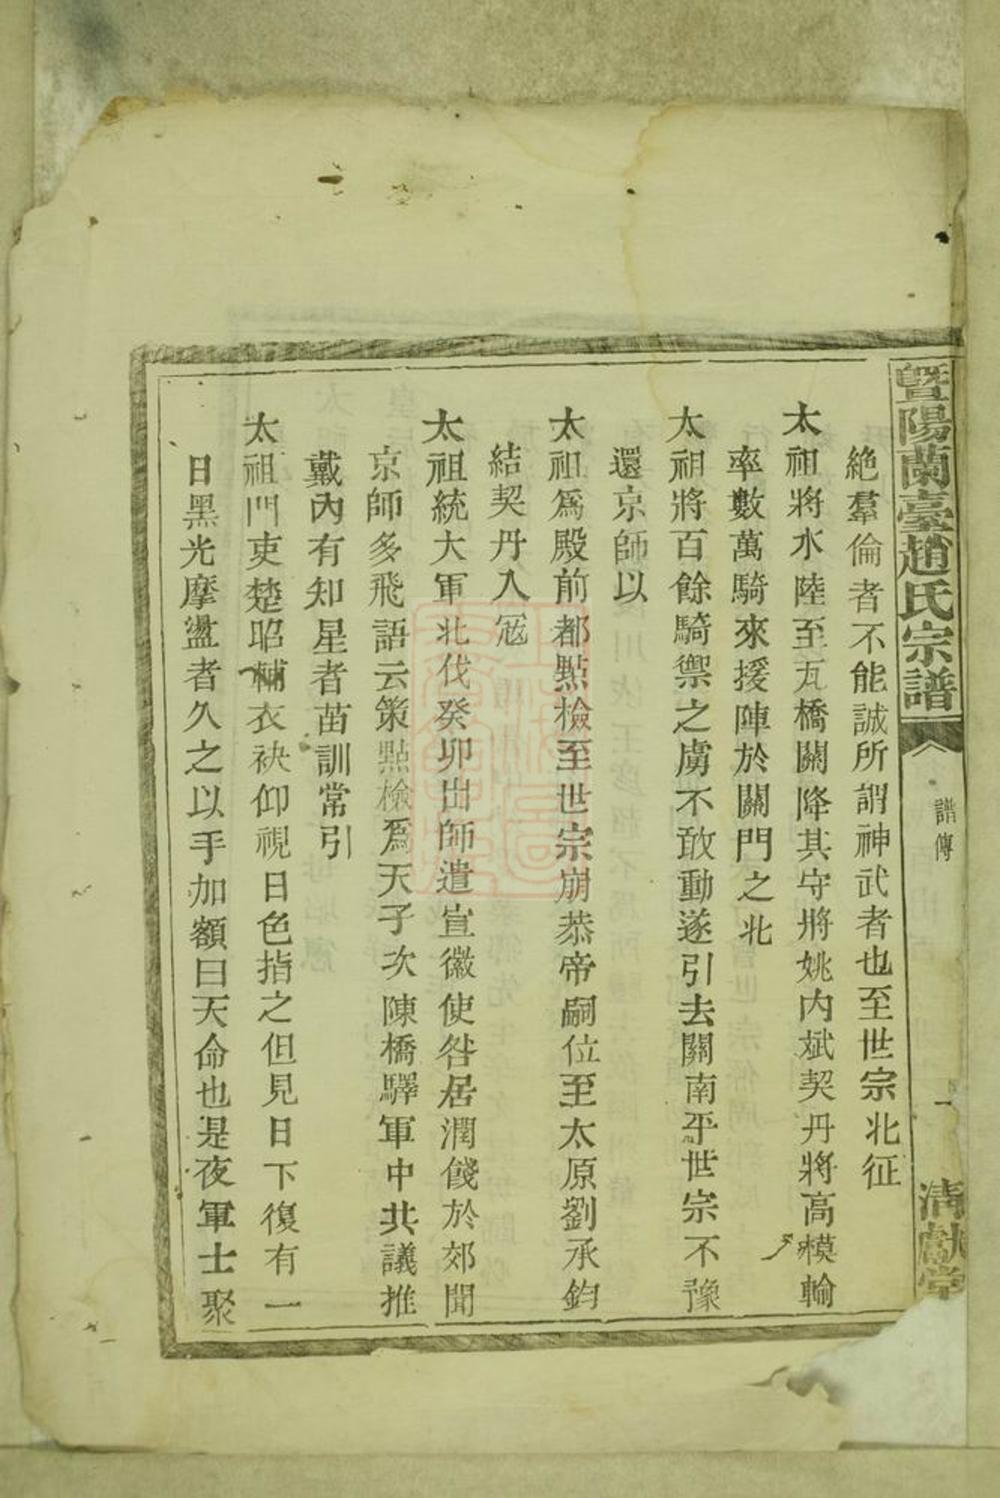 暨陽蘭臺趙氏宗譜
譜傳
一
清獻堂
絶羣倫者不能誠所謂神武者也至世宗北征
太祖將水陸至瓦橋關降其守將姚內斌契丹將高模輪
率數萬騎來援陣於關門之北
太祖將百餘騎禦之虜不敢動遂引去關南平世宗不豫
還京師以
太祖爲殿前都點檢至世宗崩恭帝嗣位至太原劉承鈞
結契丹入寇
太祖統大軍北伐癸卯出師遣宣徽使昝居潤餞於郊聞
京師多飛語云策點檢爲天子次陳橋驛軍中共議推
戴內有知星者苗訓常引
太祖門吏楚昭輔衣袂仰視日色指之但見日下復有一
日黑光摩盪者久之以手加額曰天命也是夜軍士聚